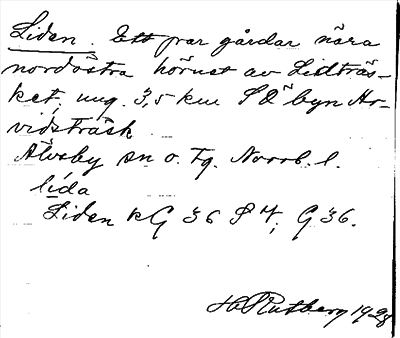 Liden. Ett par gårdar nära
nordöstra hörnet av Lidträs-
ket, ung. 3,5 km SÖ byn Ar-
vidsträsk.
Älvsby sn o. tg. Norrb. l.
lida
Liden kG 36 S 4; G 36.
H. Rutberg 1928